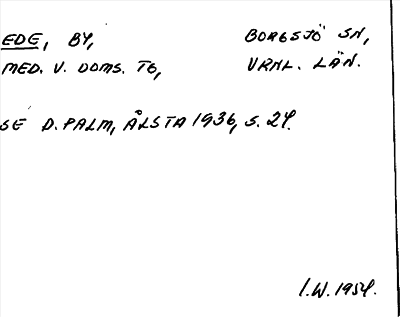 EDE, BY, BORGSJÖ SN,
MED. V. DOMS. TG, VRNL. LÄN.
SE D. PALM, ÅLSTA 1936, S. 24.
I.W. 1954.